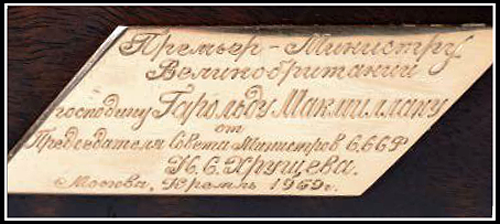 Премьер-Министру
Великобритании
господину Гарольду Макмиллану
от
Председателя Совета Министров СССР
Н.С.Хрущева.
Москва, Кремль 1959г.